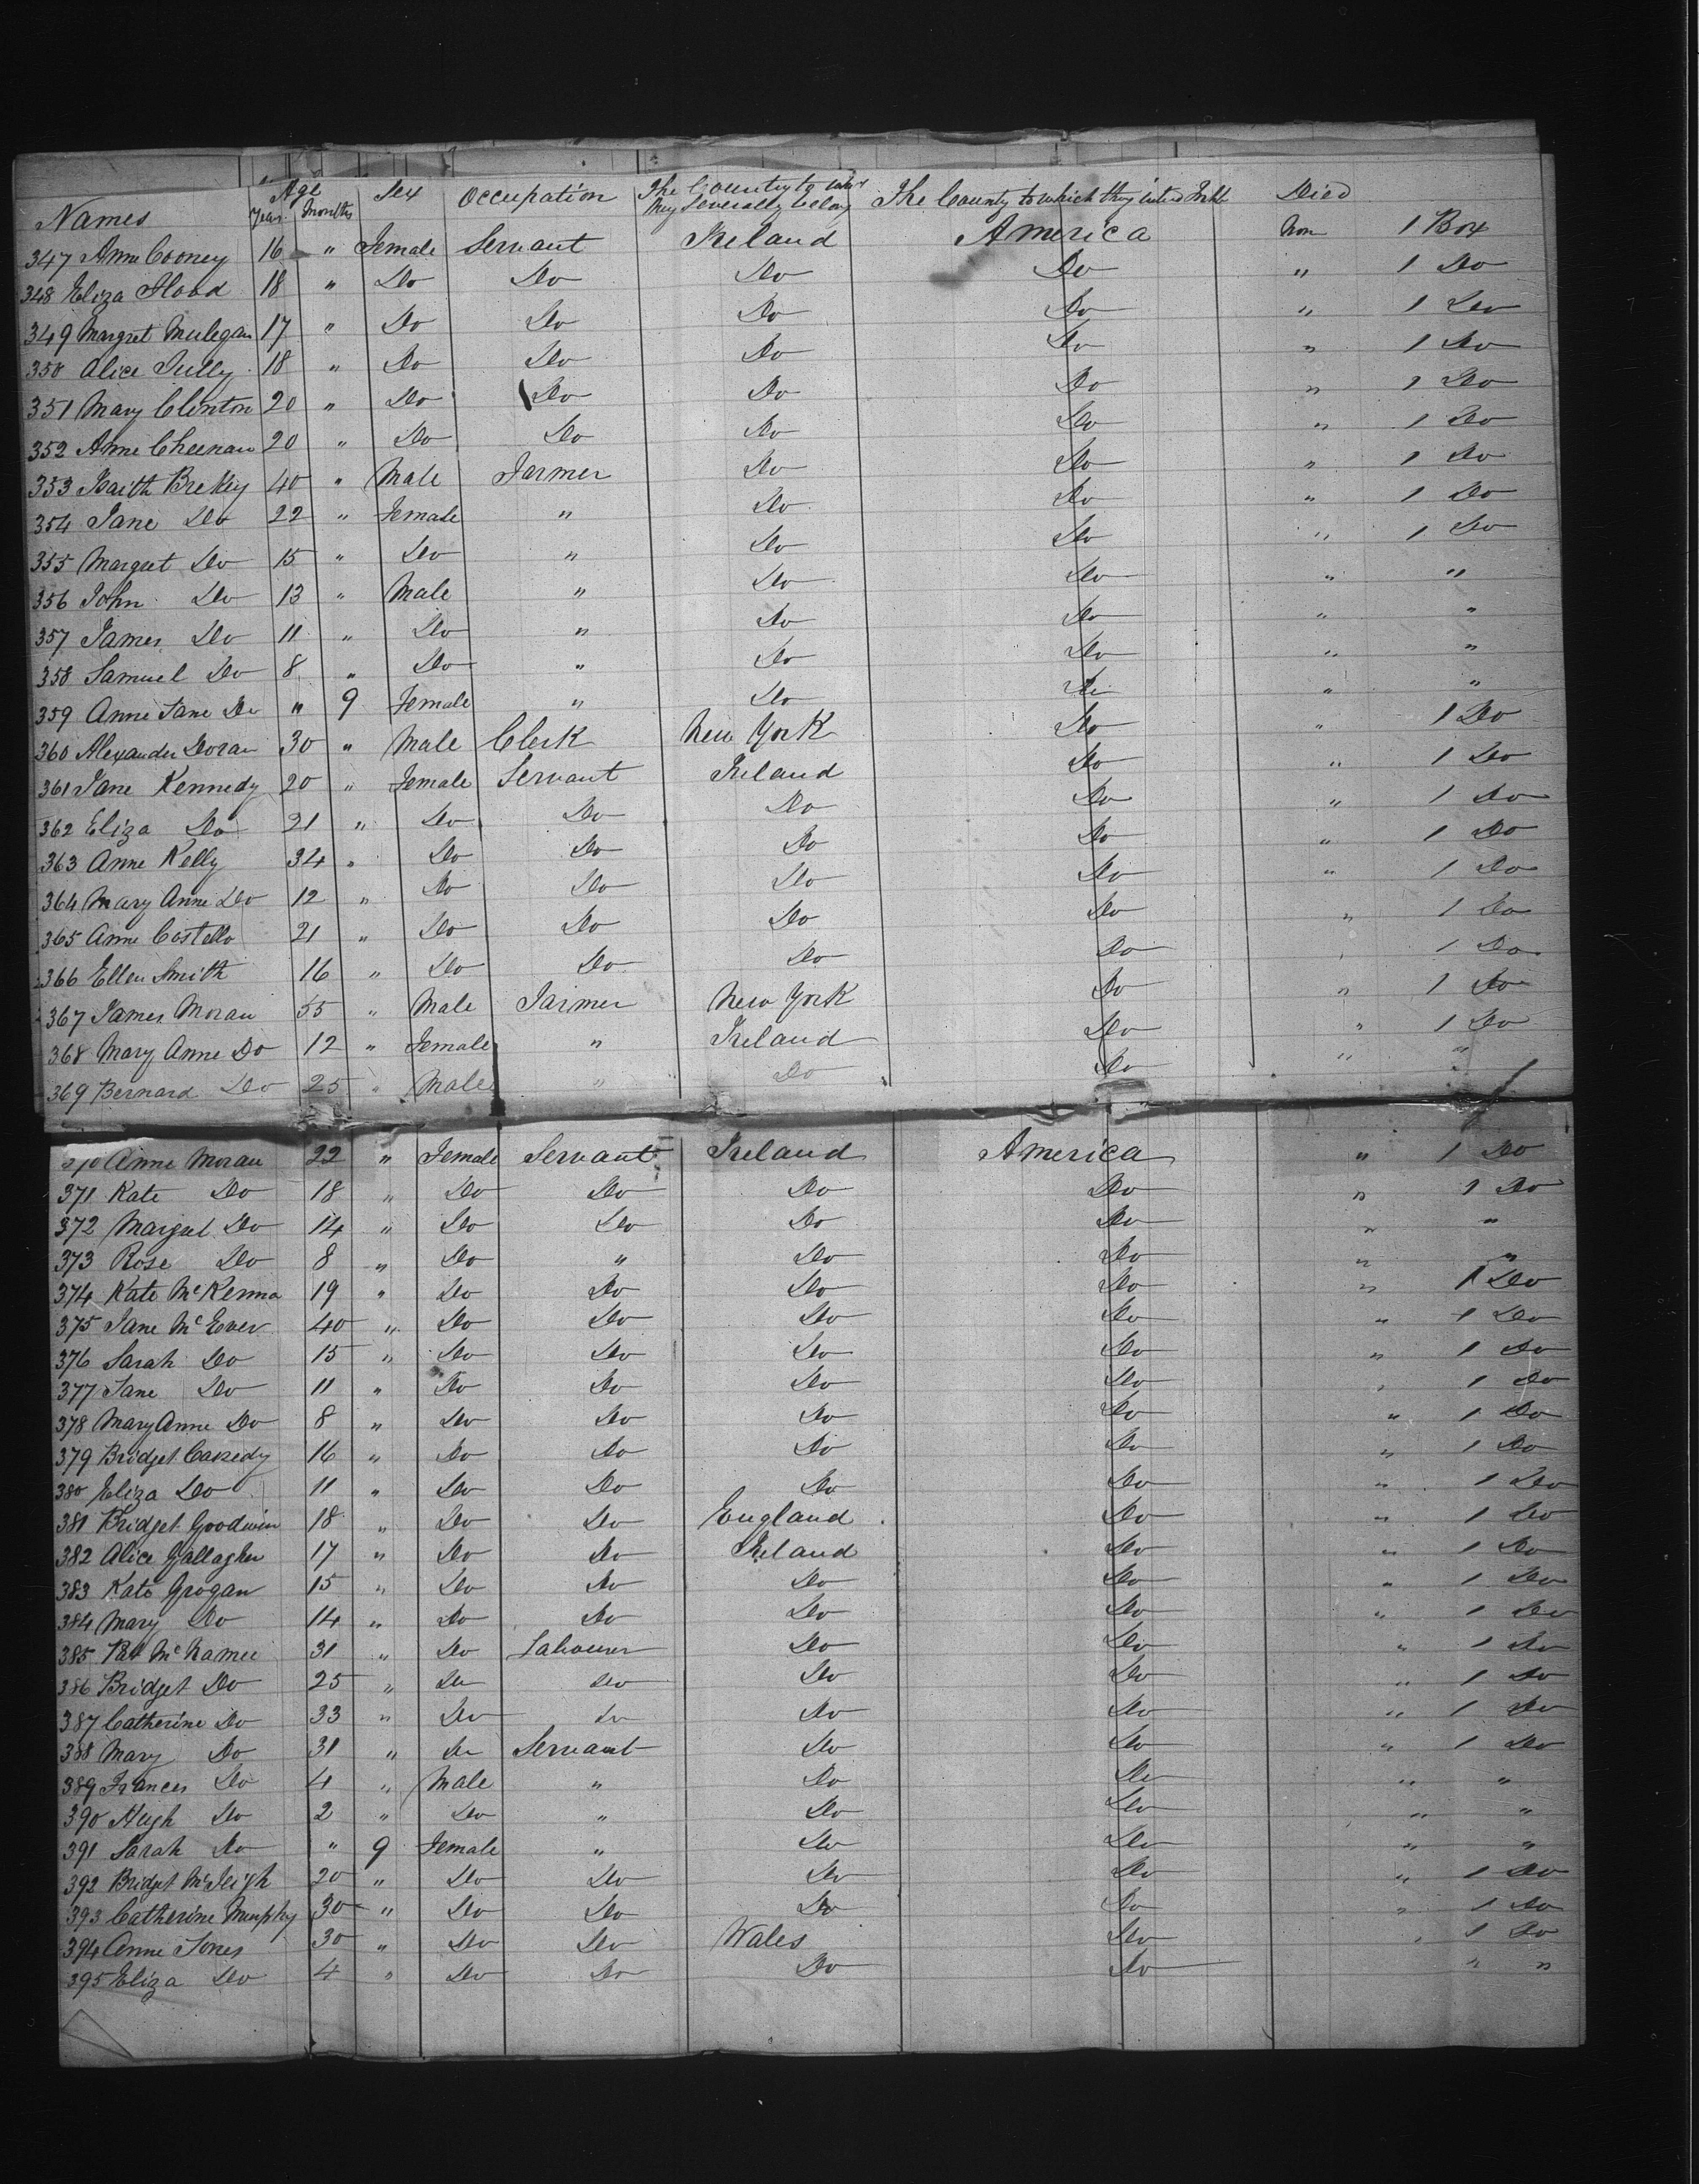 Names Age Years Months Sex Occupation The Country to which they Severally belong The Country to which they intend Died
347 Anne Cooney 16 " Female Servant Ireland America Non 1 Box
348 Eliza Flood 18 " Do Do Do Do " 1 Do
349 Margret Mulegan 17 " Do Do Do Do " 1 Do
350 Alice Tully 18 " Do Do Do Do " 1 Do
351 Mary Clinton 20 " Do Do Do Do " 1 Do
352 Anne Cheenan 20 " Do Do Do Do " 1 Do
353 Brekey 40 " Male Farmer Do Do " 1 Do
354 Jane Do 22 " Female " Do Do " 1 Do
355 Margret Do 15 " Do " Do Do " 1 Do
356 John Do 13 " Male " Do Do " "
357 James Do 11 " Do " Do Do " "
358 Samuel Do 8 " Do " Do Do " "
359 Anne Jane Do " 9 Female " Do Do " "
360 Alexander Doran 30 " Male Clerk New York Do " 1 Do
361 Jane Kennedy 20 " Female Servant Ireland Do " 1 Do
362 Eliza Do 21 " Do Do Do Do " 1 Do
363 Anne Kelly 34 " Do Do Do Do " 1 Do
364 Mary Anne Do 12 " Do Do Do Do " 1 Do
365 Anne Costello 21 " Do Do Do Do " 1 Do
366 Ellen Smith 16 " Do Do Do Do " 1 Do
367 James Moran 55 " Male Farmer New York Do " 1 Do
368 Mary Anne Do 12 " Female " Ireland Do " 1 Do
369 Bernard Do 25 " Male " Do Do " "
370 Anne Moran 22 " Female Servant Ireland America " 1 Do
371 Kate Do 18 " Do Do Do Do " 1 Do
372 Margret Do 14 " Do Do Do Do " "
373 Rose Do 8 " Do " Do Do " "
374 Kate McKenna 19 " Do Do Do Do " 1 Do
375 Jane McEver 40 " Do Do Do Do " 1 Do
376 Sarah Do 15 " Do Do Do Do " 1 Do
377 Jane Do 11 " Do Do Do Do " 1 Do
378 Mary Anne Do 8 " Do Do Do Do " 1 Do
379 Bridget Cassedy 16 " Do Do Do Do " 1 Do
380 Eliza Do 11 " Do Do Do Do " 1 Do
381 Bridget Goodwin 18 " Do Do England Do " 1 Do
382 Alice Gallagher 17 " Do Do Ireland Do " 1 Do
383 Kate Grogan 15 " Do Do Do Do " 1 Do
384 Mary Do 14 " Do Do Do Do " 1 Do
385 Pat McNamee 31 " Do Labourer Do Do " 1 Do
386 Bridget Do 25 " Do Do Do Do " 1 Do
387 Catherine Do 33 " Do Do Do Do " 1 Do
388 Mary Do 31 " Do Servant Do Do " 1 Do
389 Frances Do 4 " Male " Do Do " "
390 Hugh Do 2 " Do " Do Do " "
391 Sarah Do " 9 Female " Do Do " "
392 Bridget 20 " Do Do Do Do " 1 Do
393 Catherine Murphy 30 " Do Do Do Do " 1 Do
394 Anne Jones 30 " Do Do Wales Do " 1 Do
395 Eliza Do 4 " Do Do Do Do " "